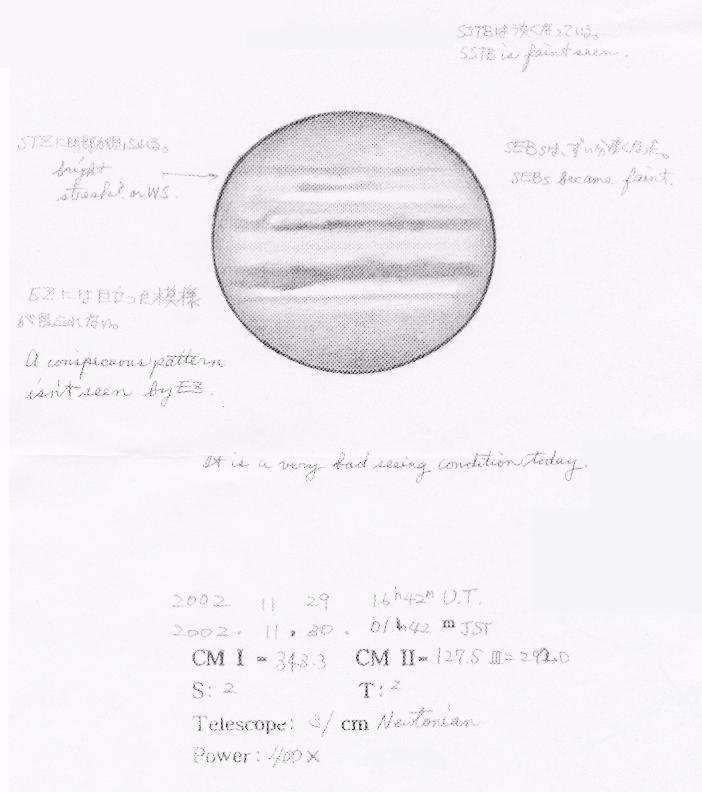 SSTBは淡くなっている。
SSTB is faint seen.
STZに明部が見られる。
bright
streak? or WS.
SEBsは、ずい分淡くなった。
SEBs became faint.
EZには目立った模様
が見られない。
A conspecuous pattern
isn't seen by EZ.
It is a very bad seeing condition today.
2002 11 29 16h42m U.T.
2002. 11. 30. 01h42m JST
CM I = 343.3 CM II= 127.5 III=
S: 2 T: 2
Telescope: 31 cm Newtonian
Power: 400X